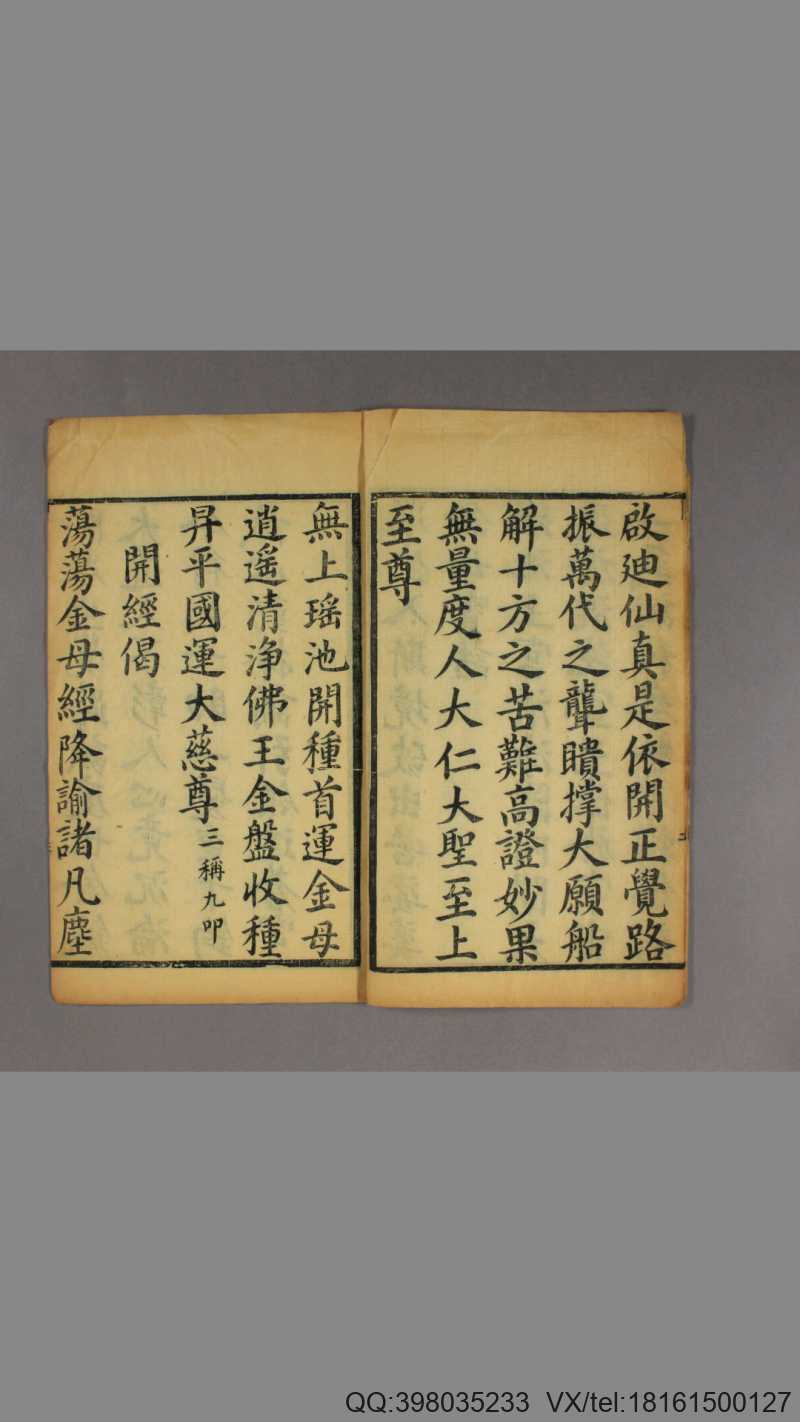 啟廸仙真是依開正覺路
振萬代之聾瞶撑大願船
解十方之苦難高證妙果
無量度人大仁大聖至上
至尊
無上瑶池開種首運金母
逍遥清淨佛王金盤收種
昇平國運大慈尊三稱九叩
開經偈
蕩蕩金母經降諭諸凡塵
QQ:398035233 VX/tel:18161500127